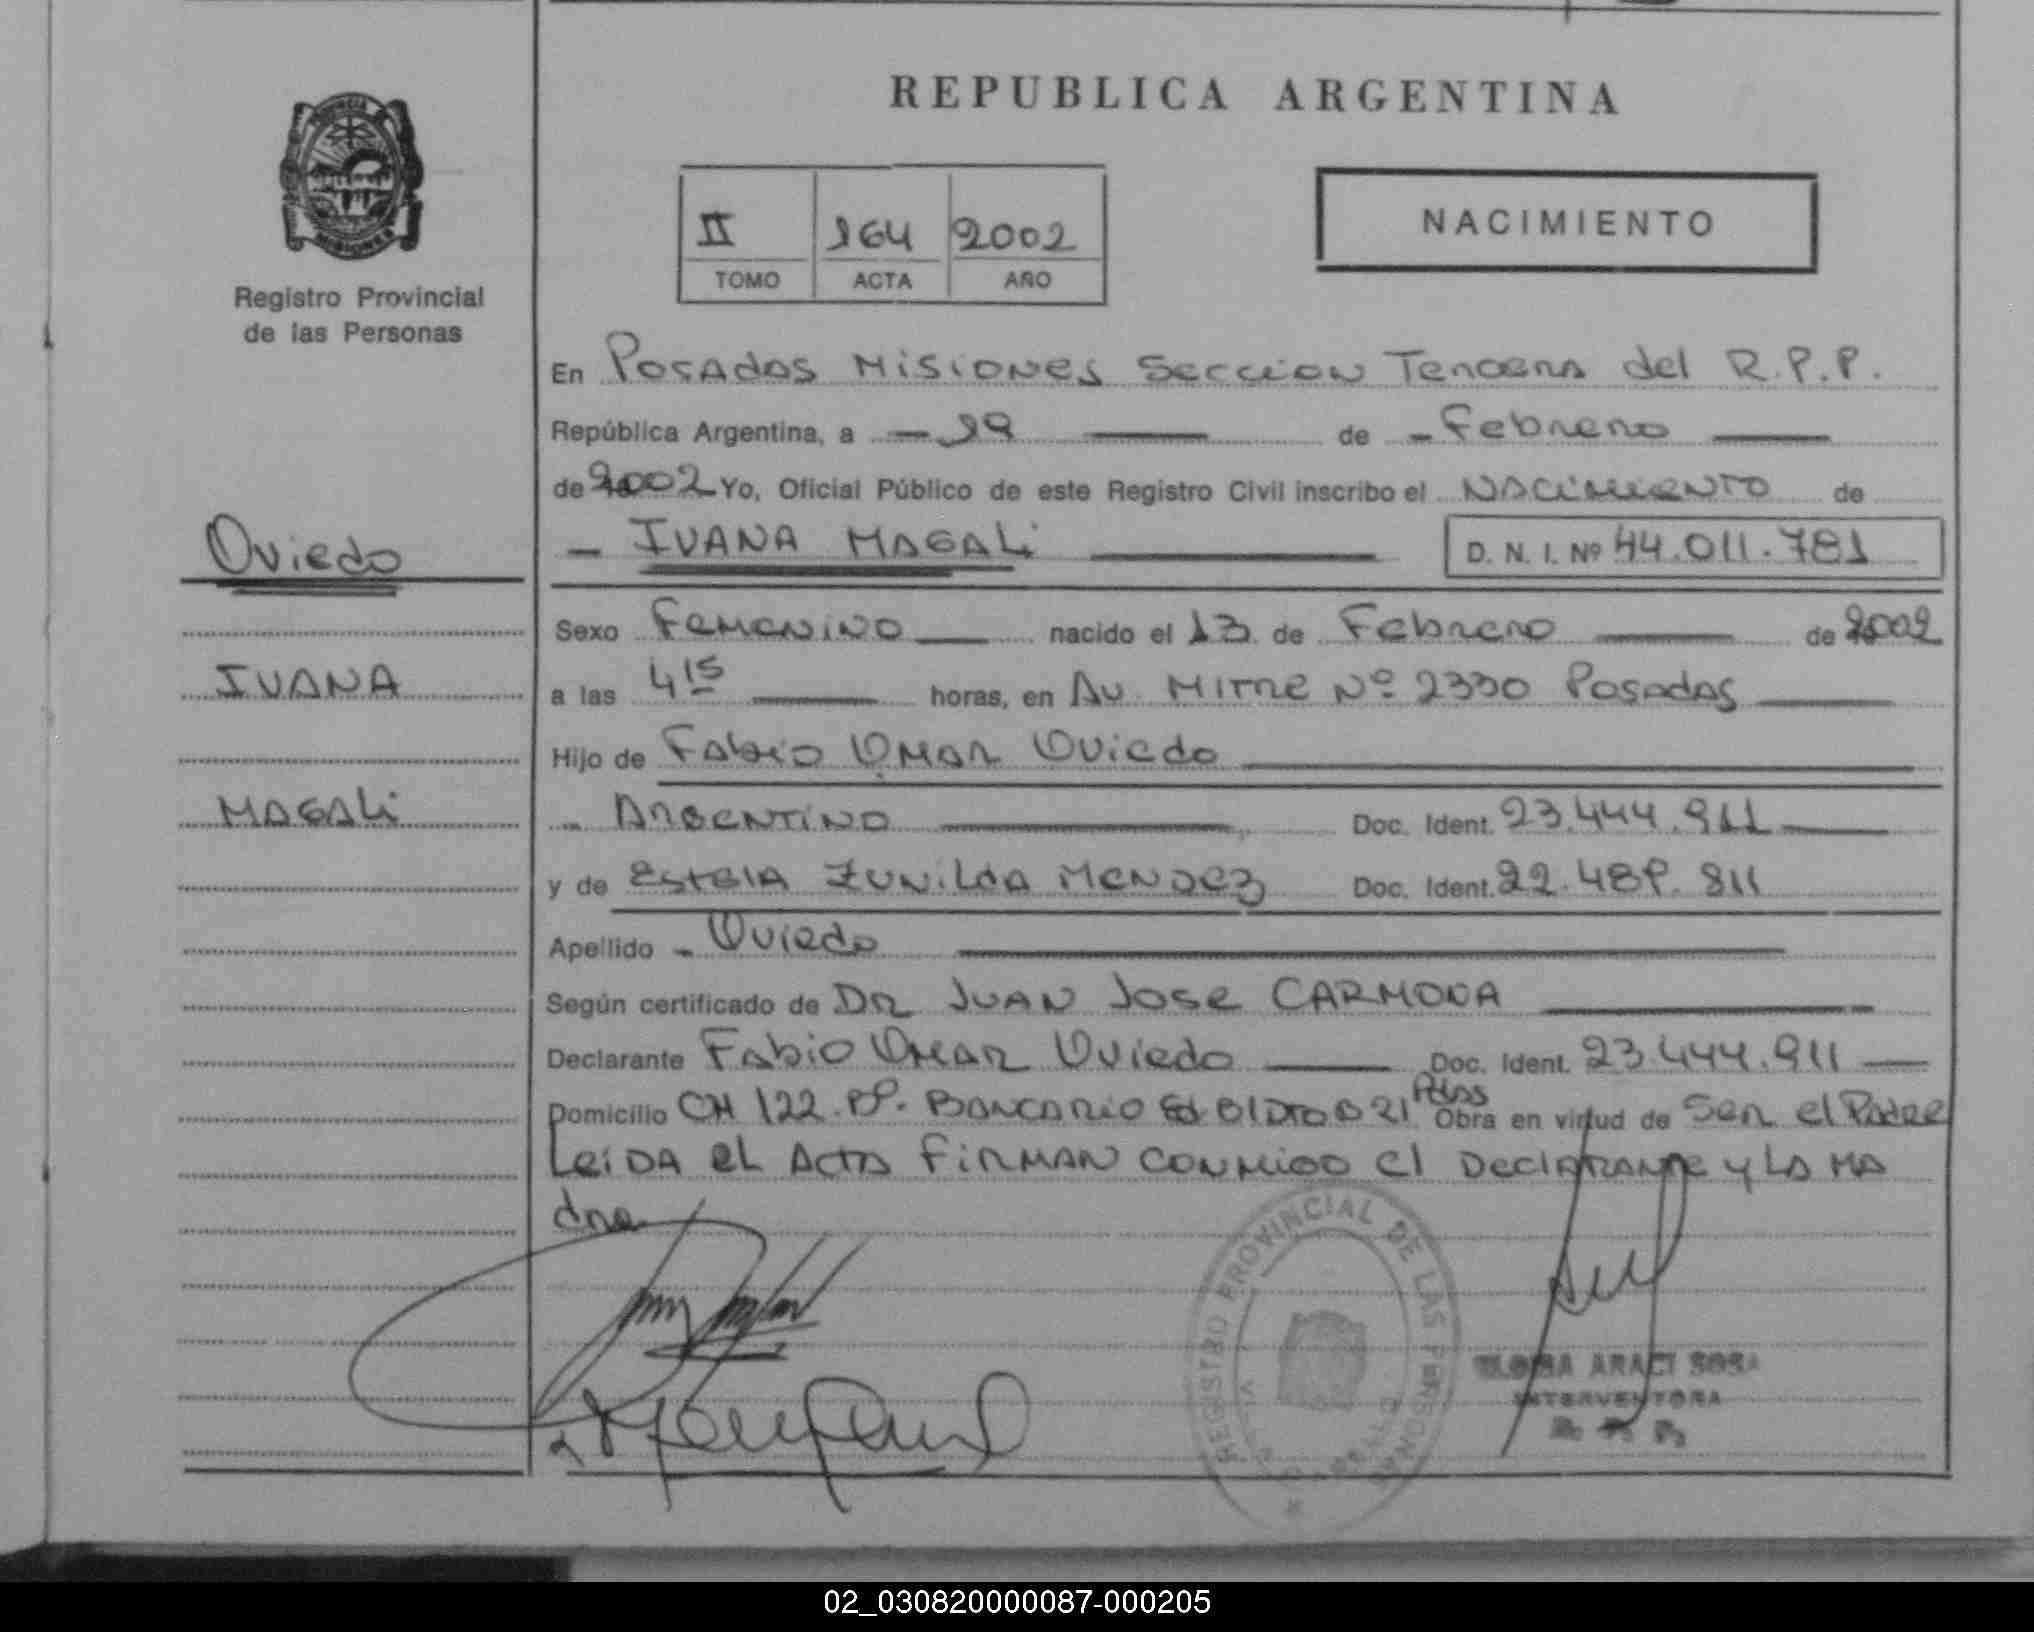 REPUBLICA ARGENTINA
PROVINCIA DE
MISIONES
Registro Provincial
de las Personas
II 164 2002
TOMO ACTA AÑO
NACIMIENTO
En Posadas Misiones Seccion Tercera del R.P.P.
República Argentina, a - 19 — de - Febrero —
de 2002 Yo, Oficial Público de este Registro Civil inscribo el NACIMIENTO de
Oviedo
- IVANA MAGALI — D. N. I. Nº 44.011.781
Sexo Femenino — nacido el 13 de Febrero — de 2002
IVANA
a las 4 15 — horas, en Av. Mitre Nº 2330 Posadas —
Hijo de Fabio Omar Oviedo —
MAGALi
- Argentino — Doc. Ident. 23.444.911 —
y de Estela Zunilda Mendez Doc. Ident. 22.489.811
Apellido - Oviedo —
Según certificado de DR JUAN Jose CARMONA —
Declarante Fabio Omar Oviedo — Doc. Ident. 23.444.911 —
Domicilio CH 122 Bº. Bancario Ed B1 Dto B 21 Pdas Obra en virtud de Ser el Padre
Leida el Acta Firman conmigo el Declarante y la ma
dre
REGISTRO PROVINCIAL DE LAS PERSONAS
ARACI SOSA
INTERVENTORA
02_030820000087-000205